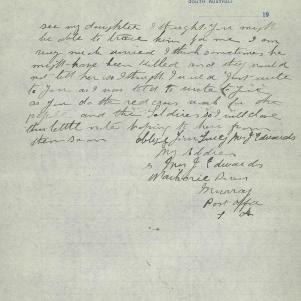 SOUTH AUSTRALI
19
see my daughter I thought you might
be able to trace him for me I am
very much worried I think sometimes he
might have been killed and they would
not tell her so I thought I would just write
to you as I was told to write to you
as you do the red cross work for the
people and the soldiers so I will close
this little note hoping to hear from
them soon oblige yours truly Mrs J Edwards
My Address
Mrs J Edwards
Murray
Post office
S A